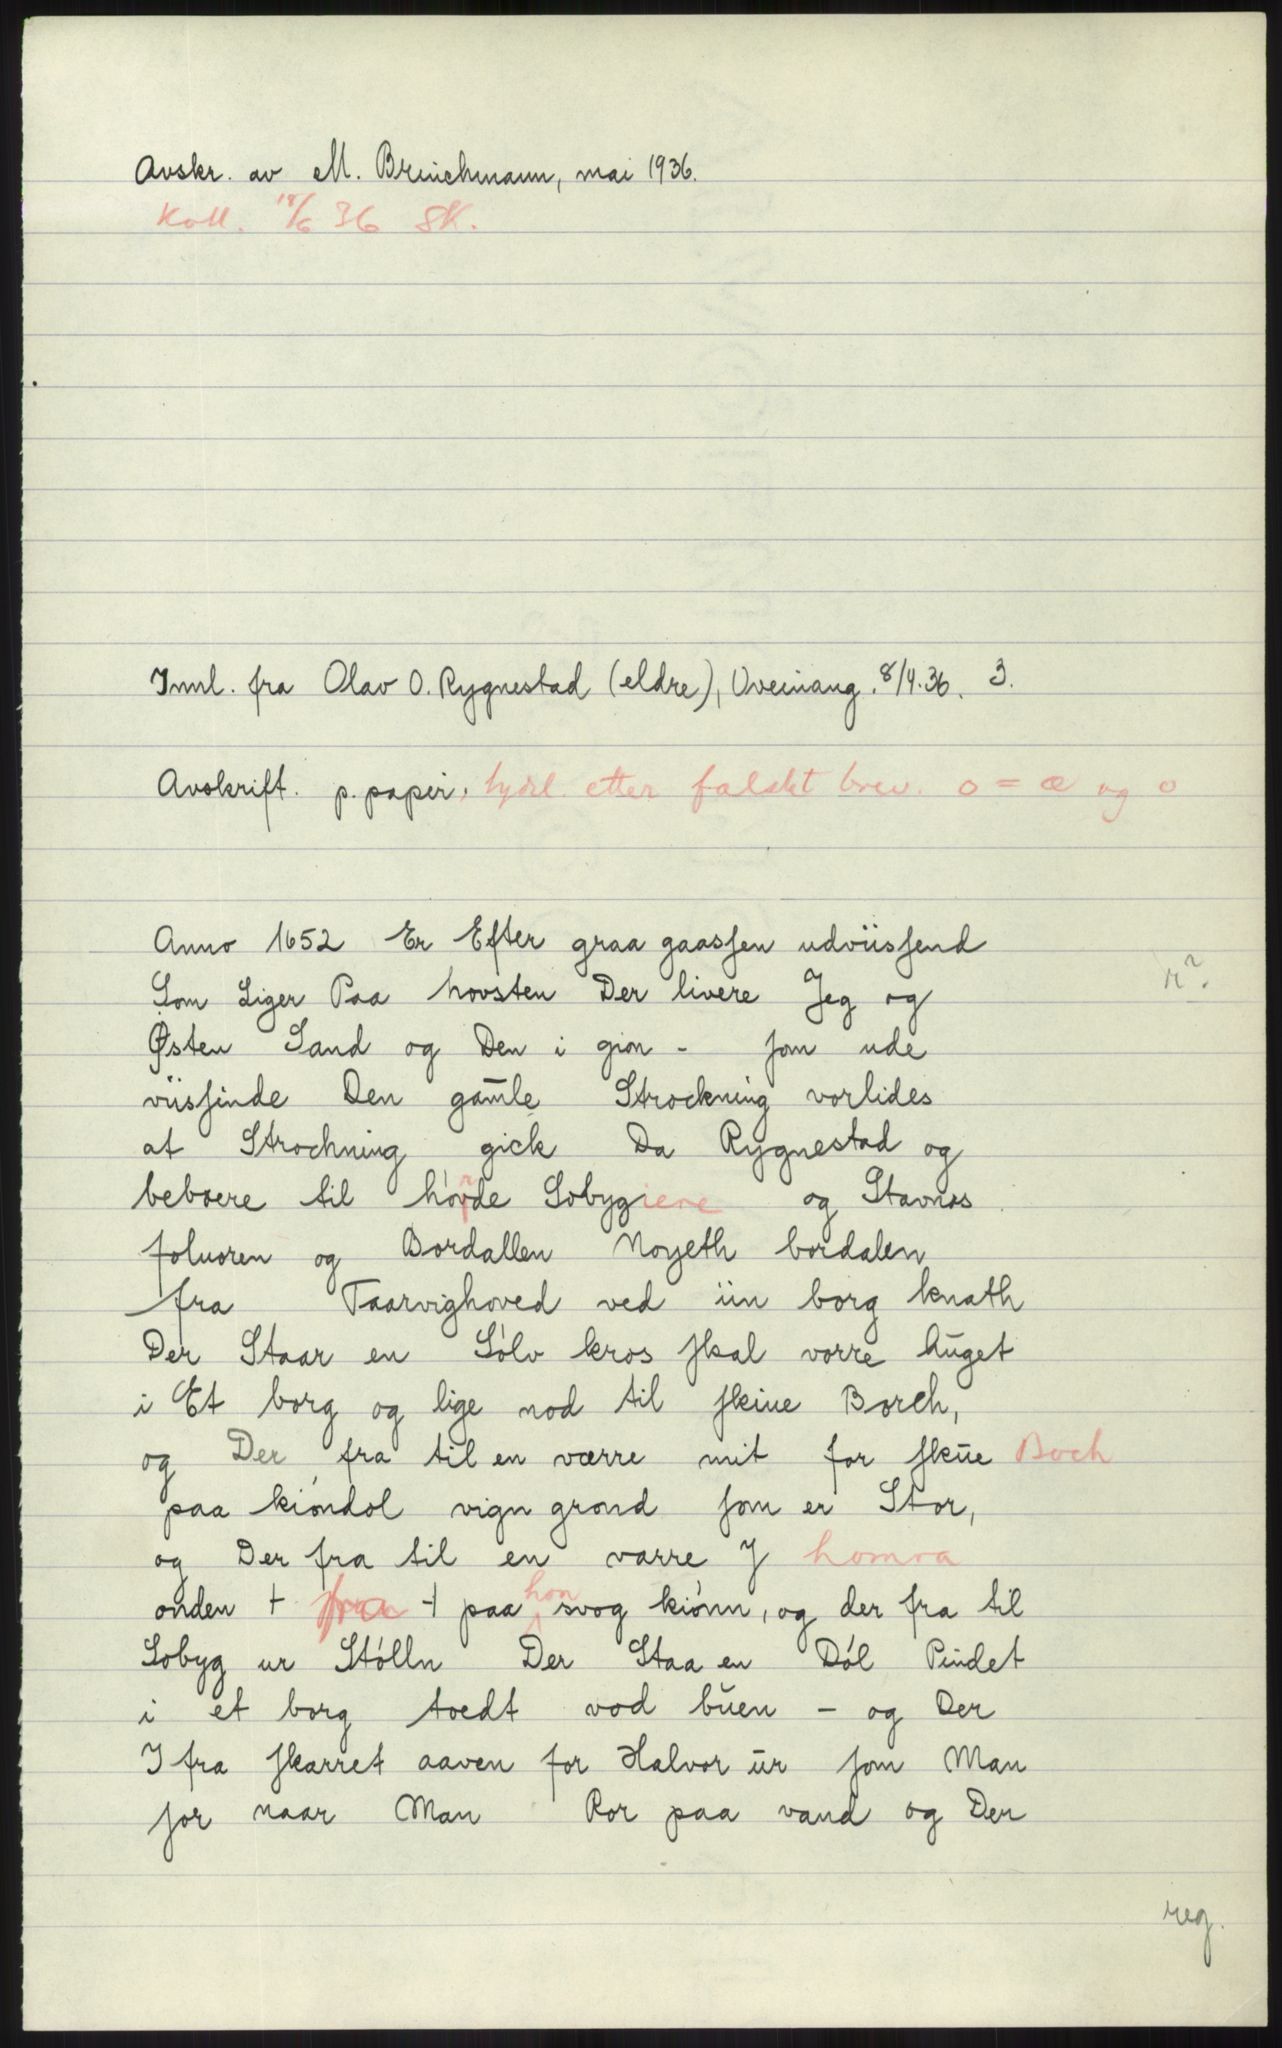 Avskr. av M. Brinchmann, mai 1936.
Koll. 18/6 36 SK.
Innl. fra Olav O. Rygnestad (eldre), Oveinang. 8/4.36. 3.
Avskrift. p. papir, tydel. etter falskt brev. o = æ og o
Anno 1652 Er Efter graa gaasſen udviisſend
Som Liger Paa hovsten Der livere Jeg og r?
Østen Sand og Den i gion - ſom ude
viisſinde Den gam̄le Strockning vorlides
at Strochning gick Da Rygnestad og
beboere til hórde Sobygiere og Stavnos
foluoren og Bordallen Noyeth bordalen
fra Taarvighoved ved ün borg knath
Der Staar en Sólv kros ſkal vorre hŭget
i Et borg og lige nod til ſkiue Borch,
og Der fra til en værre mit for ſkŭe Boch
paa kióndol vign grond ſom er Stor,
og Der fra til en varre J homra
onden + fra + paa hon svog kiónn, og der fra til
Sobyg ur Stólln Der Staa en Dól Pindet
i et borg toedt vod bŭen - og Der
I fra ſkarret aaven for Halvor ŭr ſom Man
ſor naar Man Ror paa vand og Den
reg.